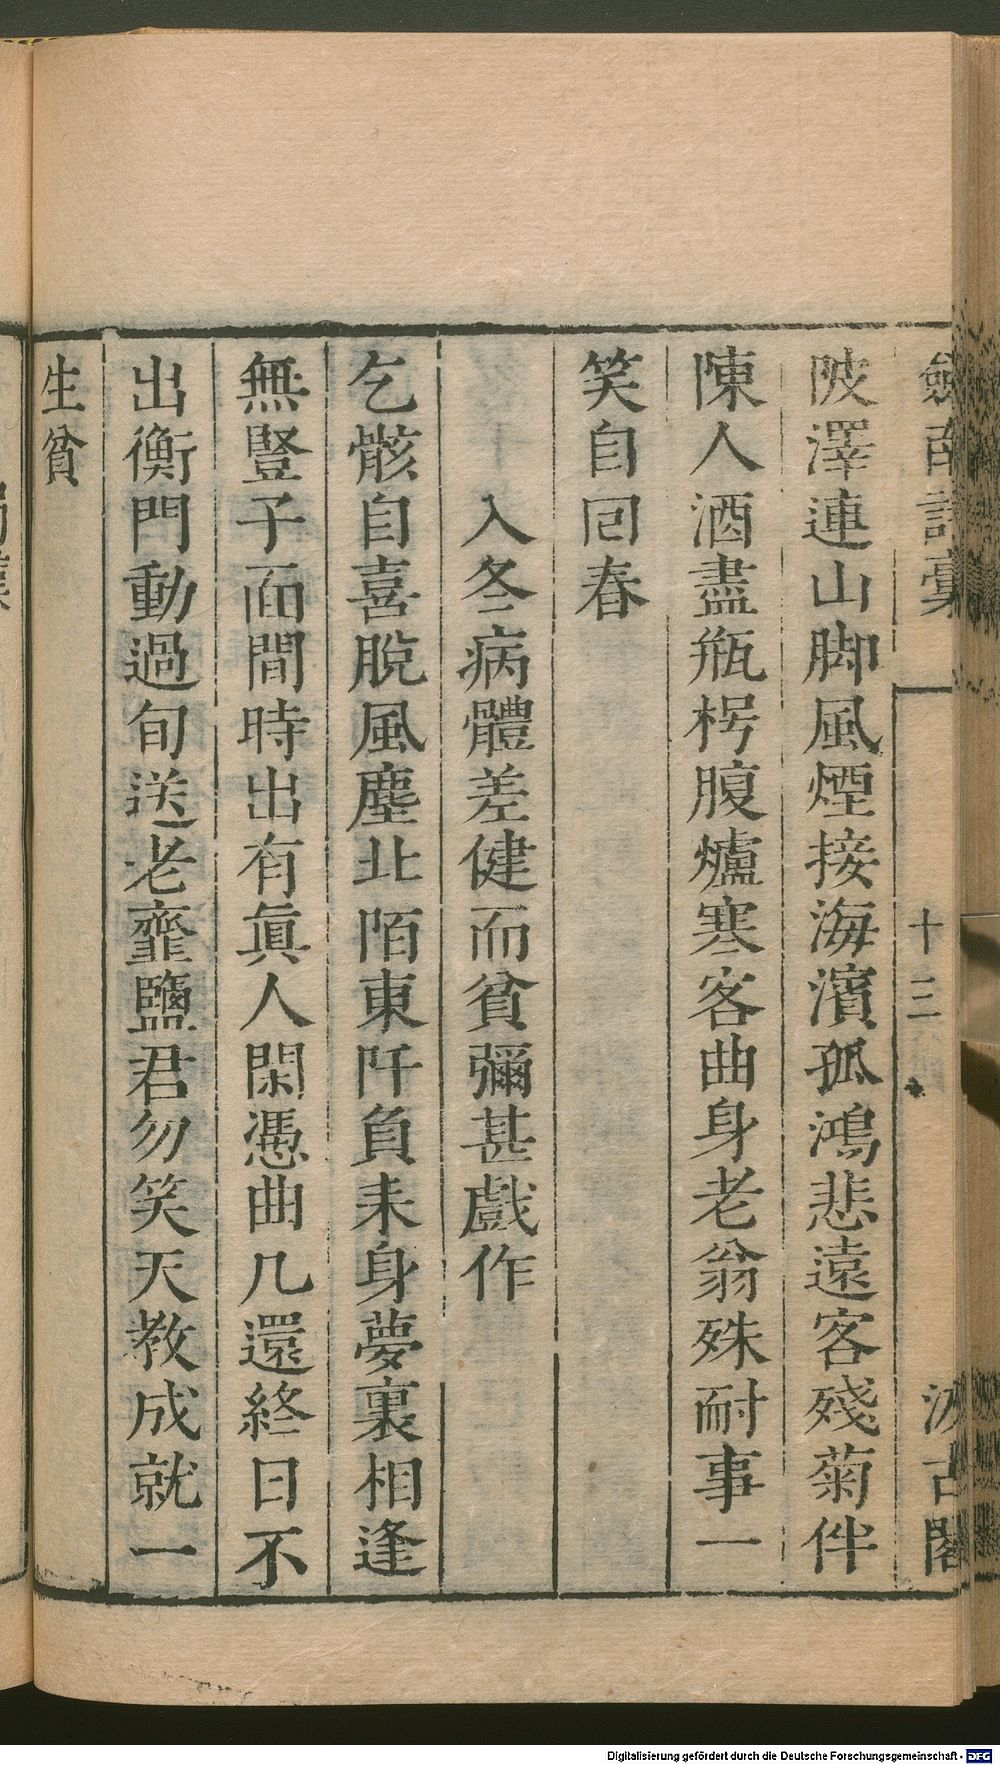 劍南詩稾
十三
汲古閣
陂澤連山脚風煙接海濱孤鴻悲遠客殘菊伴
陳人酒盡瓶枵腹爐寒客曲身老翁殊耐事一
笑自回春
入冬病體差健而貧彌甚戲作
乞骸自喜脫風塵北陌東阡負耒身夢裏相逢
無豎子面間時出有眞人閑憑曲几還終日不
出衡門動過旬送老虀鹽君勿笑天教成就一
生貧
Digitalisierung gefördert durch die Deutsche Forschungsgemeinschaft - DFG